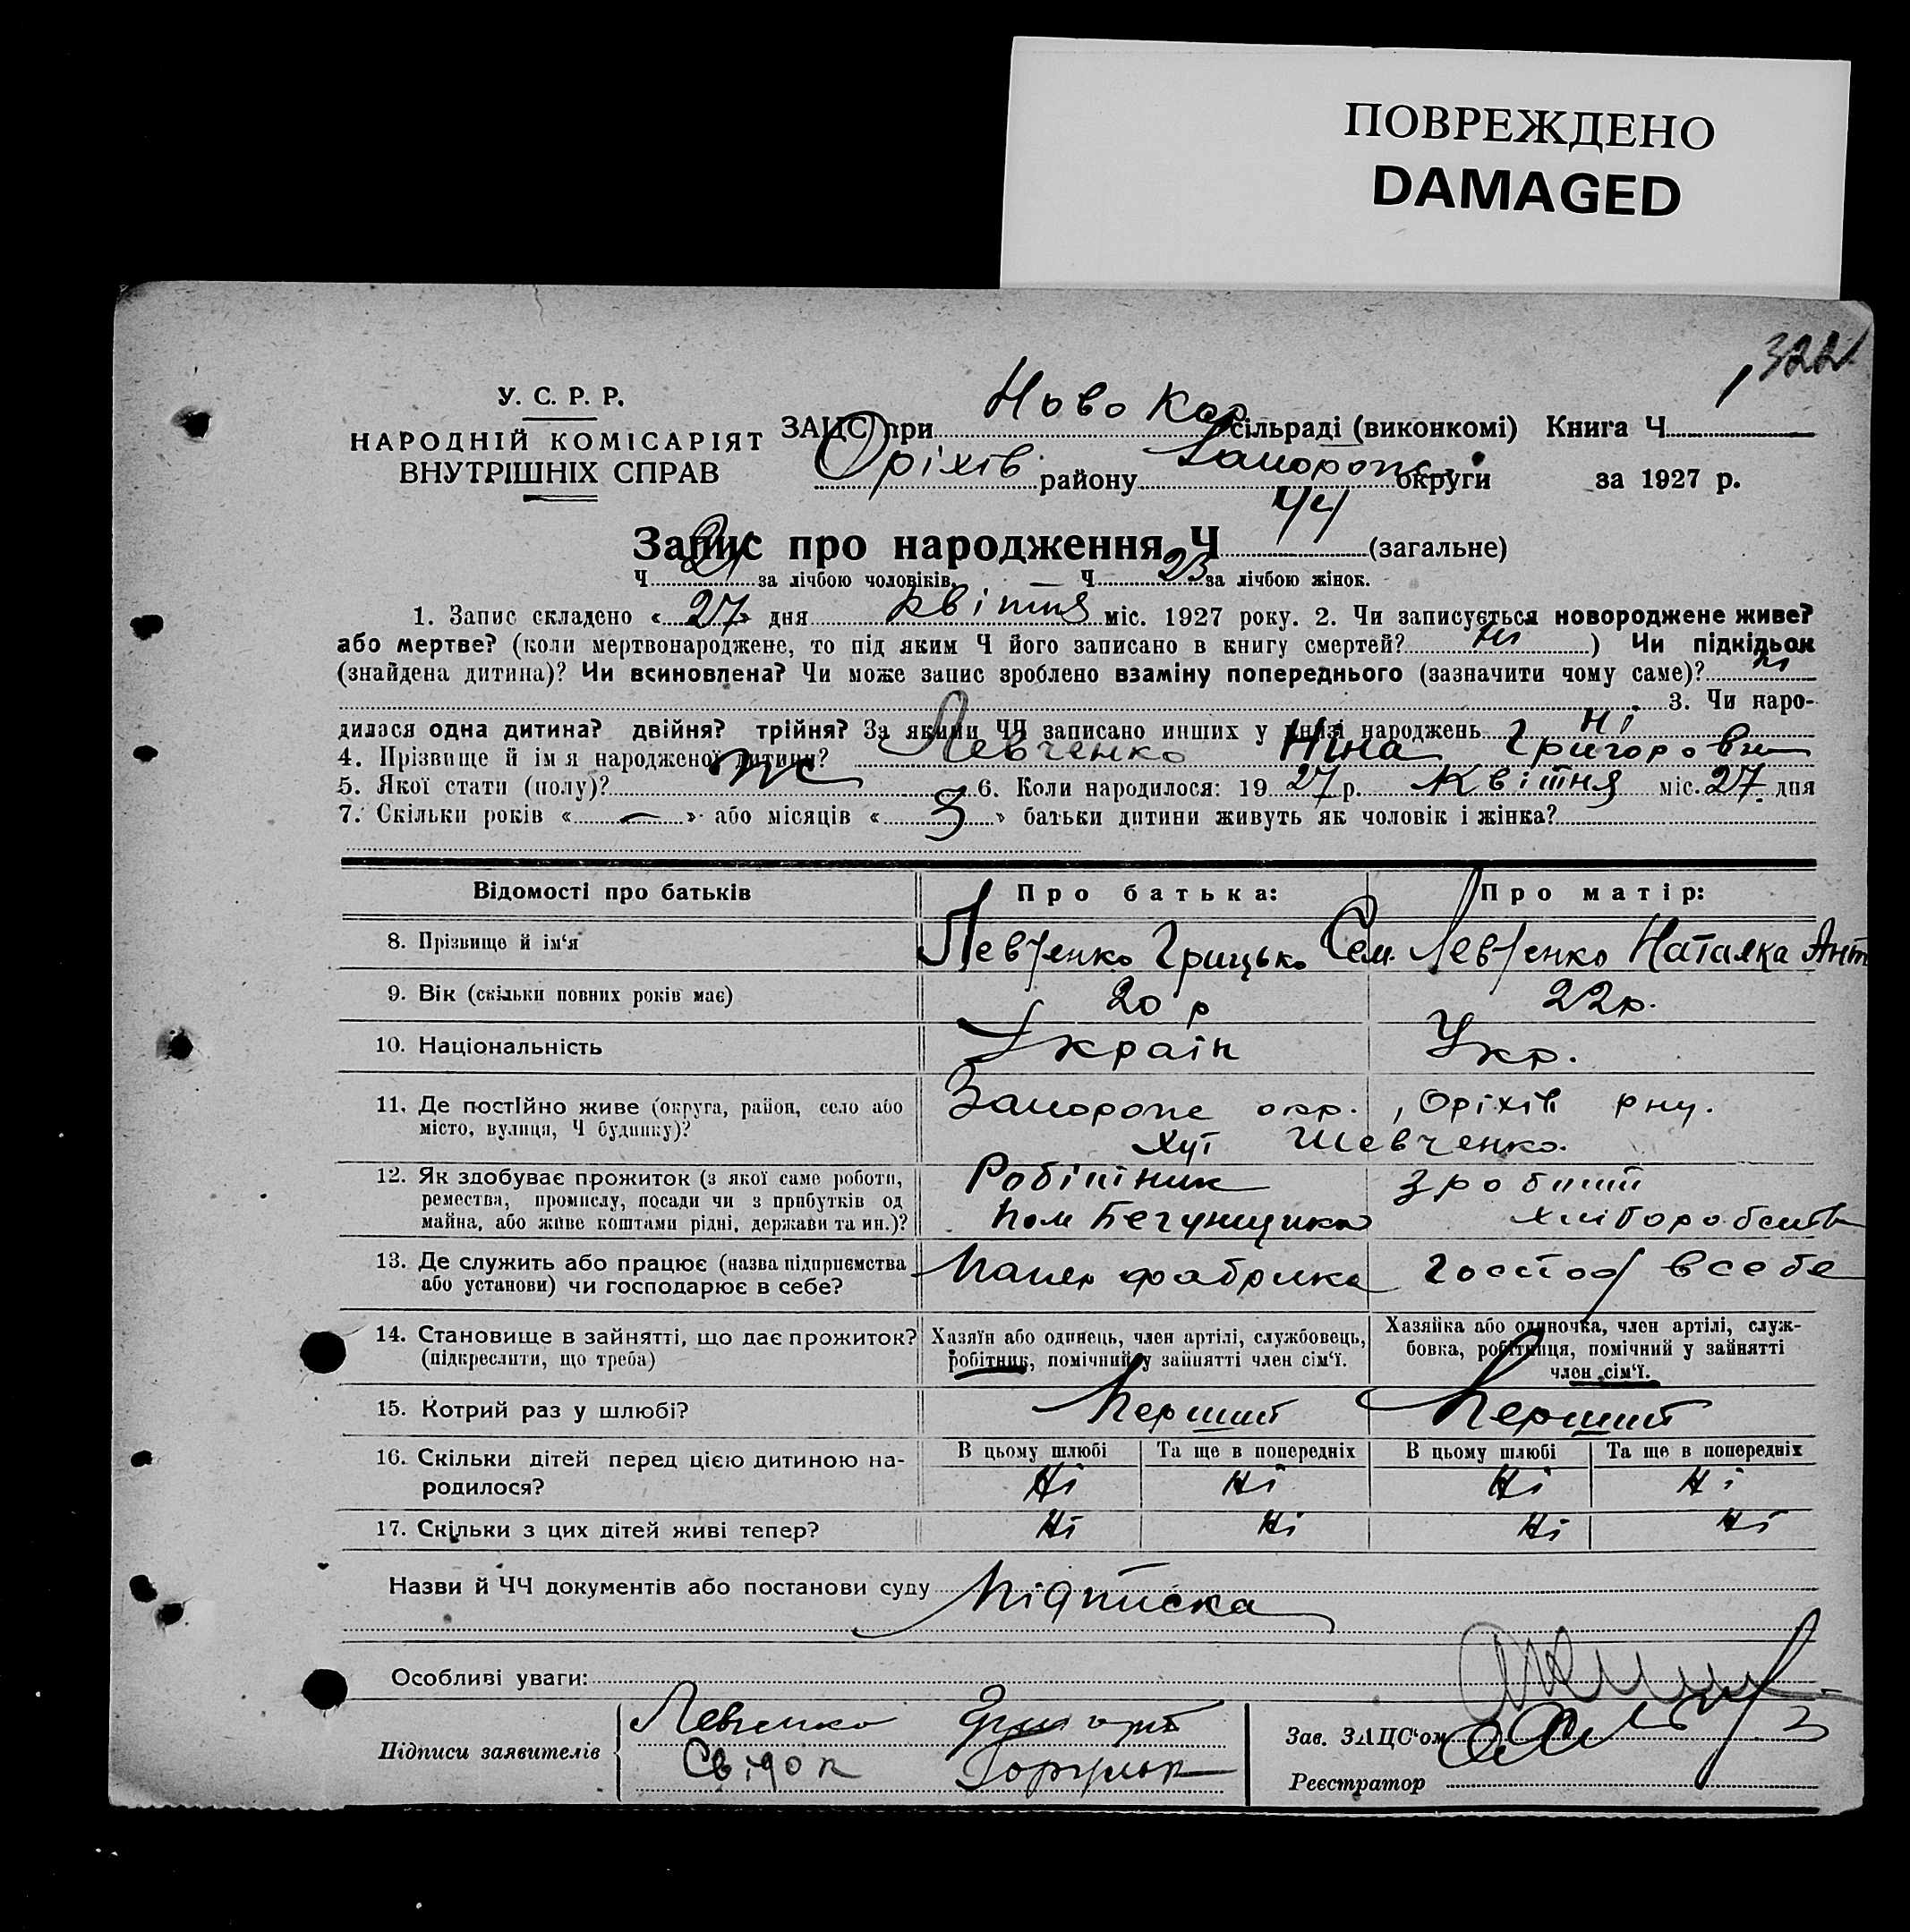 ПОВРЕЖДЕНО
DAMAGED
322
У. С. Р. Р.
НАРОДНІЙ КОМІСАРІЯТ
ВНУТРІШНІХ СПРАВ
ЗАЦС при Ново Кар сільраді (виконкомі) Книга Ч
Оріхів району Запорож округи за 1927 р.
Запис про народження Ч 44 (загальне)
Ч 21 за лічбою чоловіків. — Ч 23 за лічбою жінок.
1. Запис складено « 27 » дня квітня міс. 1927 року. 2. Чи записується новороджене живе?
або мертве? (коли мертвонароджене, то під яким Ч його записано в книгу смертей? ні ) Чи підкідьок
(знайдена дитина)? Чи всиновлена? Чи може запис зроблено взаміну попереднього (зазначити чому саме)? ні
3. Чи наро-
дилася одна дитина? двійня? трійня? За якими ЧЧ записано инших у книзі народжень ні
4. Прізвище й ім я народженої дитини? Левченко Ніна Григоровн
5. Якої стати (полу)? ж 6. Коли народилося: 19 27 р. Квітня міс. 27 дня
7. Скільки років « — » або місяців « 8 » батьки дитини живуть як чоловік і жінка?
Відомості про батьків Про батька: Про матір:
8. Прізвище й ім‘я Левченко Грицько Сем. Левченко Наталка Ант
9. Вік (скільки повних років має) 20 р 22р.
10. Національність Україн Укр.
11. Де постійно живе (округа, район, село або Запорож окр., Оріхів рну.
місто, вулиця, Ч будинку)? хут Шевченко.
12. Як здобуває прожиток (з якої саме роботи, Робітник зробіття
ремества, промислу, посади чи з прибутків од
майна, або живе коштами рідні, держави та ин.)? пом Бегунщика хліборобств
13. Де служить або працює (назва підприємства
або установи) чи господарює в себе? Папер фабрика господ в себе
14. Становище в зайнятті, що дає прожиток? Хазяїн або одинець, член артілі, службовець, Хазяйка або одиночка, член артілі, служ-
(підкреслити, що треба) робітник, помічний у зайнятті член сім‘ї. бовка, робітниця, помічний у зайнятті
член сім‘ї.
15. Котрий раз у шлюбі? Перший Перший
В цьому шлюбі Та ще в попередніх В цьому шлюбі Та ще в попередніх
16. Скільки дітей перед цією дитиною на-
родилося? Ні Ні Ні Ні
17. Скільки з цих дітей живі тепер? Ні Ні Ні Ні
Назви й ЧЧ документів або постанови суду Підписка
Особливі уваги:
Підписи заявителів Левченко
Свідок
Зав. ЗАЦС‘ом
Реєстратор